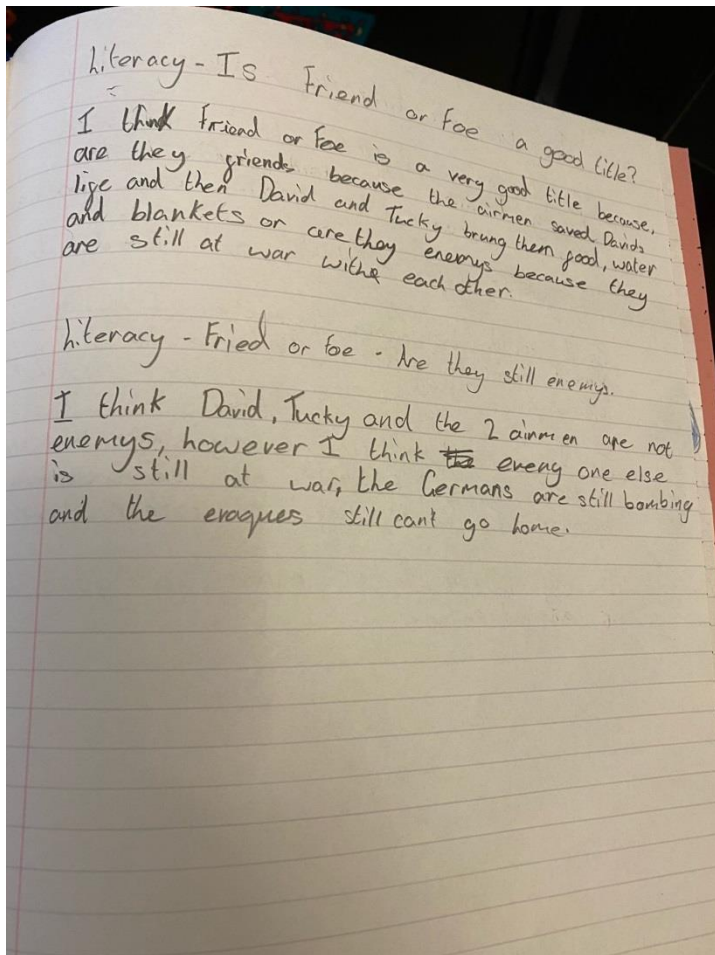 Literacy - Is Friend or Foe a good title?
I think Friend or Foe is a very good title because,
are they friends because the airmen saved Davids
life and then David and Tucky brung them food, water
and blankets or are they enemys because they
are still at war withe each other.
Literacy - Fried or foe - Are they still enemys.
I think David, Tucky and the 2 airmen are not
enemys, however I think every one else
is still at war, the Germans are still bombing
and the evaques still can't go home.